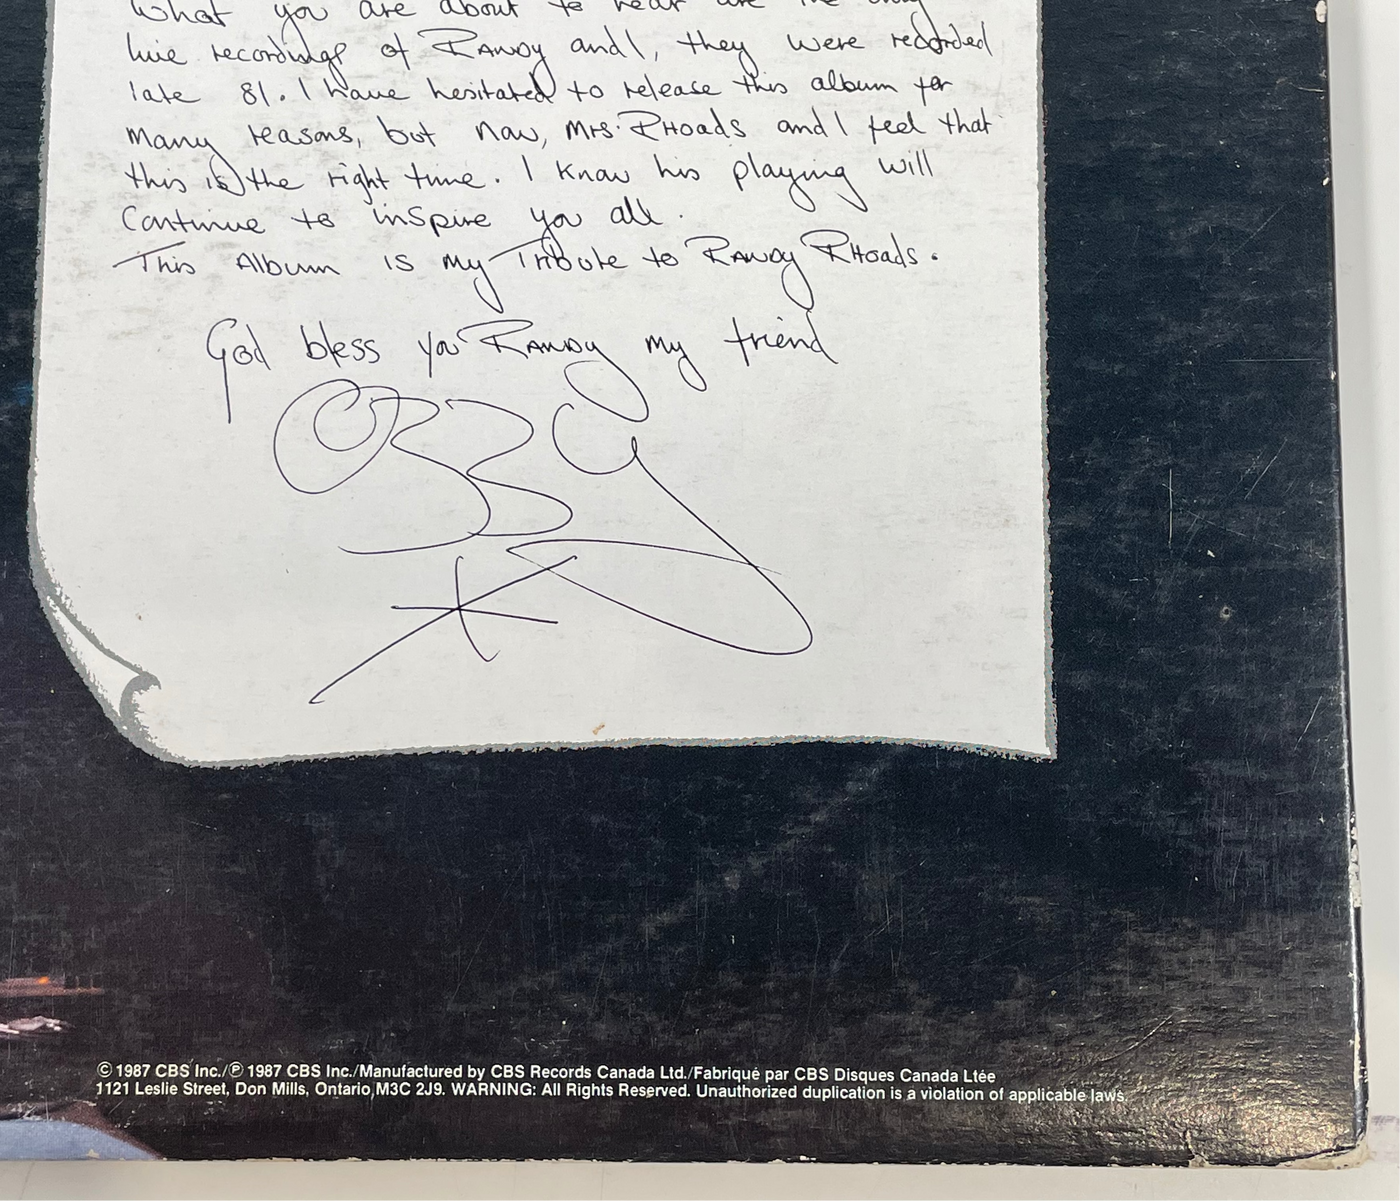 What you are about to hear are the only
live recordings of RANDY and I, they were recorded
late 81. I have hesitated to release this album for
many reasons, but now, Mrs. RHoads and I feel that
this is the right time. I know his playing will
Continue to inspire you all.
This Album is my Tribute to RANDY RHoads.
God bless you RANDY my friend
OZZY
© 1987 CBS Inc./℗ 1987 CBS Inc./Manufactured by CBS Records Canada Ltd./Fabriqué par CBS Disques Canada Ltée
1121 Leslie Street, Don Mills, Ontario, M3C 2J9. WARNING: All Rights Reserved. Unauthorized duplication is a violation of applicable laws.